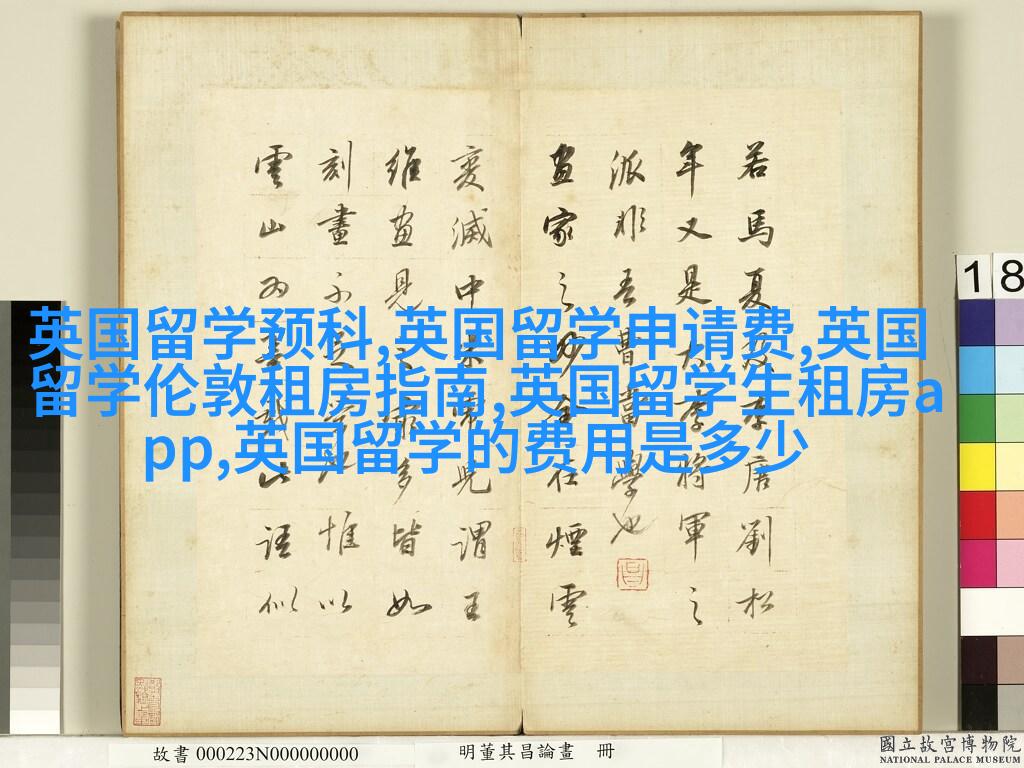 若馬夏及李唐劉松
年又是大李將軍之
派非吾曹當學也
畫家之妙全在煙雲
變滅中米虎兒謂王
維畫見之最多皆如
刻畫不足學也惟以
雲山為墨戲此語似
英国留学预科,英国留学申请费,英国
留学伦敦租房指南,英国留学生租房a
pp,英国留学的费用是多少
18
故書 000223N000000000
明董其昌論畫 冊
國立故宮博物院
NATIONAL PALACE MUSEUM